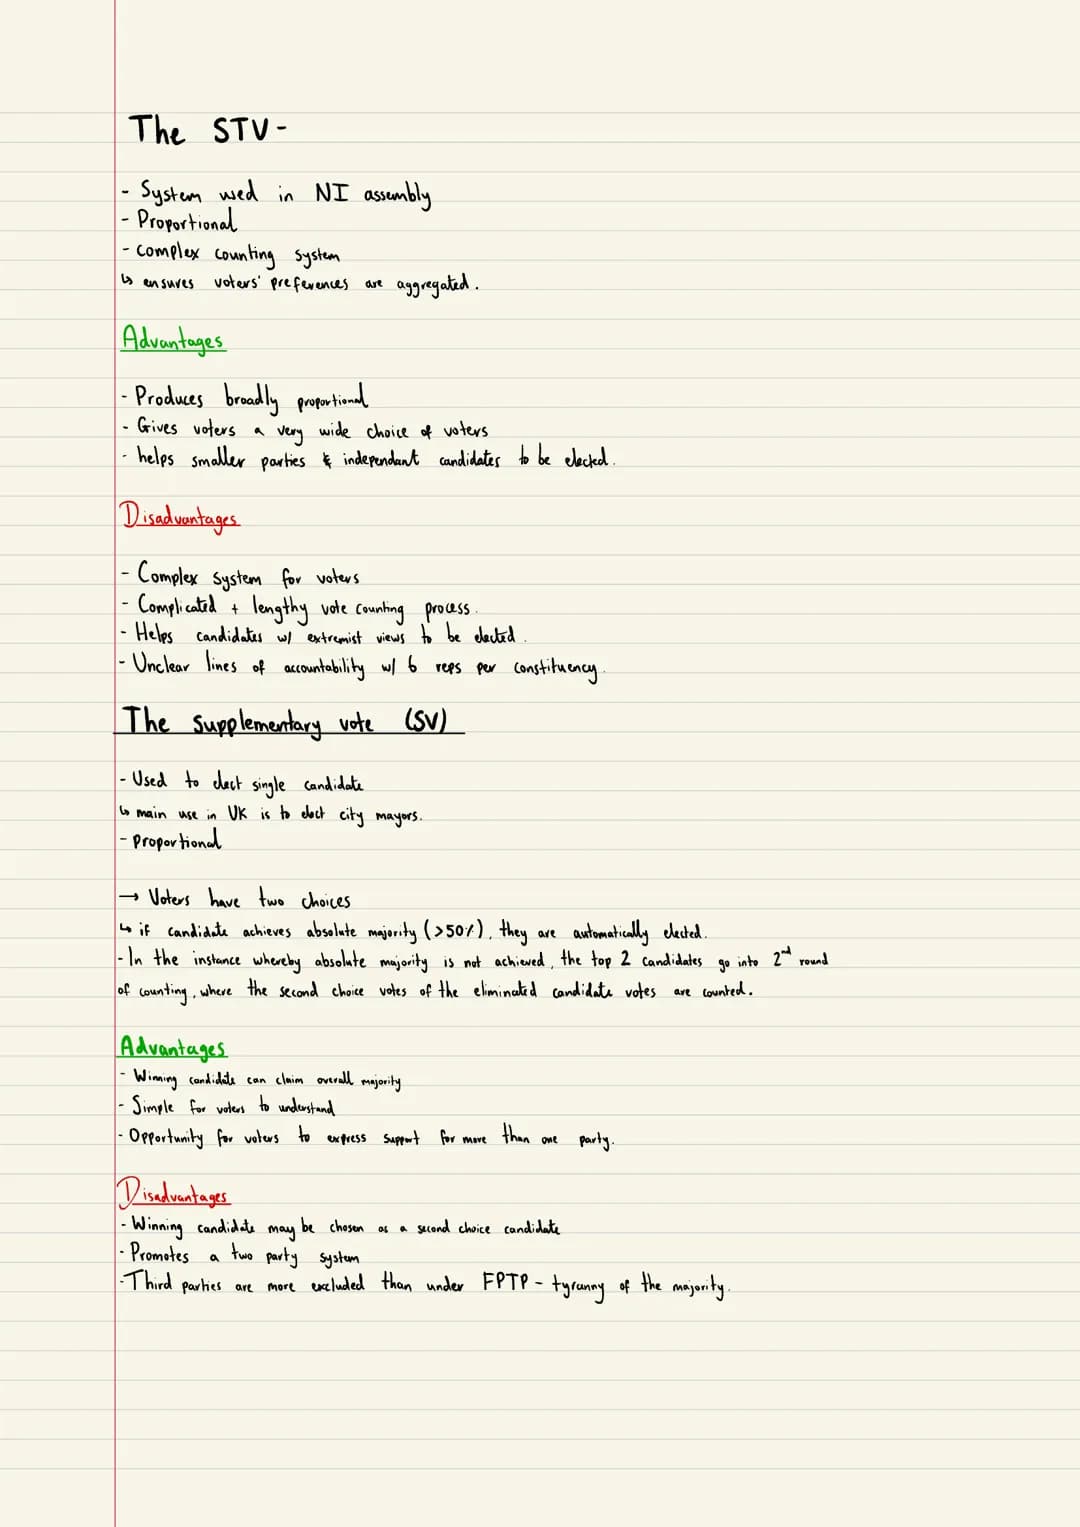 The STV -
- System used in NI assembly
- Proportional
- complex counting system
↳ ensures voters' preferences are aggregated.
Advantages
- Produces broadly proportional
- Gives voters a very wide choice of voters
- helps smaller parties & independant candidates to be elected.
Disadvantages
- Complex system for voters
- Complicated + lengthy vote counting process.
- Helps candidates w/ extremist views to be elected.
- Unclear lines of accountability w/ 6 reps per constituency.
The supplementary vote (SV)
- Used to elect single candidate
↳ main use in UK is to elect city mayors.
- proportional
→ Voters have two choices
↳ if candidate achieves absolute majority (>50%), they are automatically elected.
- In the instance whereby absolute majority is not achieved, the top 2 candidates go into 2nd round
of counting, where the second choice votes of the eliminated candidate votes are counted.
Advantages
- Winning candidate can claim overall majority
- Simple for voters to understand
- Opportunity for voters to express support for more than one party.
Disadvantages
- Winning candidate may be chosen as a second choice candidate
- Promotes a two party system
- Third parties are more excluded than under FPTP - tyranny of the majority.